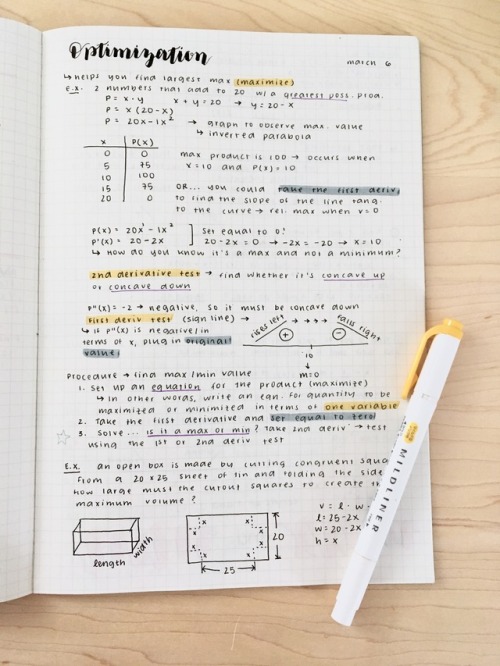 Optimization
march 6
↳ helps you find largest max (maximize)
E.x. 2 numbers that add to 20 w/ a greatest poss. prod.
P = x · y   x + y = 20 → y = 20 - x
P = x (20 - x)
P = 20x - 1x² → graph to observe max. value
↳ inverted parabola
x   P(x)
0   0
5   75
10   100
15   75
20   0
max product is 100 → occurs when
x = 10 and P(x) = 10
OR... you could take the first deriv.
to find the slope of the line tang.
to the curve → rel. max when
P(x) = 20x¹ - 1x²
P'(x) = 20 - 2x
set equal to 0!
20 - 2x = 0 → -2x = -20 → x = 10
↳ how do you know it's a max and not a minimum?
2nd derivative test → find whether it's concave up
or concave down
P"(x) = -2 → negative, so it must be concave down
First deriv test (sign line) →
↳ if P"(x) is negative/in
terms of x, plug in original
value!
rises left
falls right
+
-
10
m=0
Procedure → find max/min value
1. Set up an equation for the product (maximize)
↳ in other words, write an eqn. for quantity to be
maximized or minimized in terms of one variable
2. Take the first derivative and set equal to zero!
3. Solve... is it a max or min? Take 2nd deriv → test
using the 1st or 2nd deriv test
E.x. an open box is made by cutting congruent squa
from a 20 x 25 sheet of tin and folding the side
how large must the cutout squares to create th
maximum volume?
length
width
x
x
x
x
x
x
x
x
20
25
V = l · w
l = 25 - 2x
w = 20 - 2x
h = x
MILDLINER